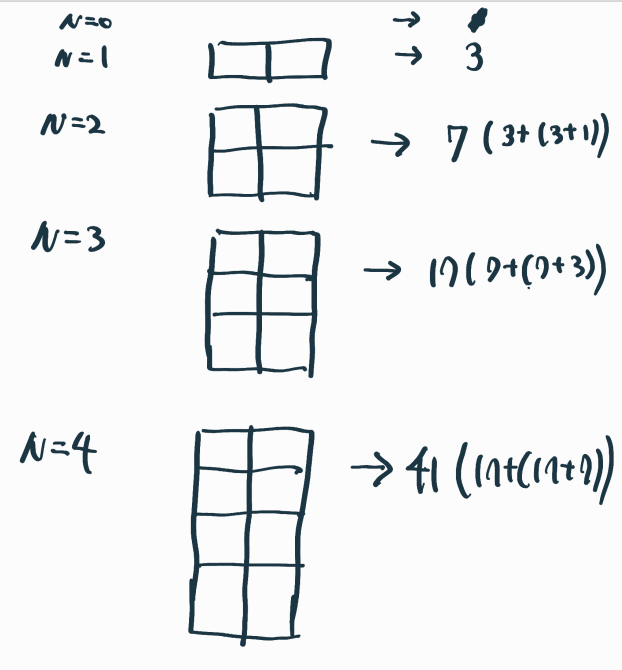 N=0 →
N=1 → 3
N=2 → 7 (3+(3+1))
N=3 → 17 (7+(7+3))
N=4 → 41 (17+(17+7))